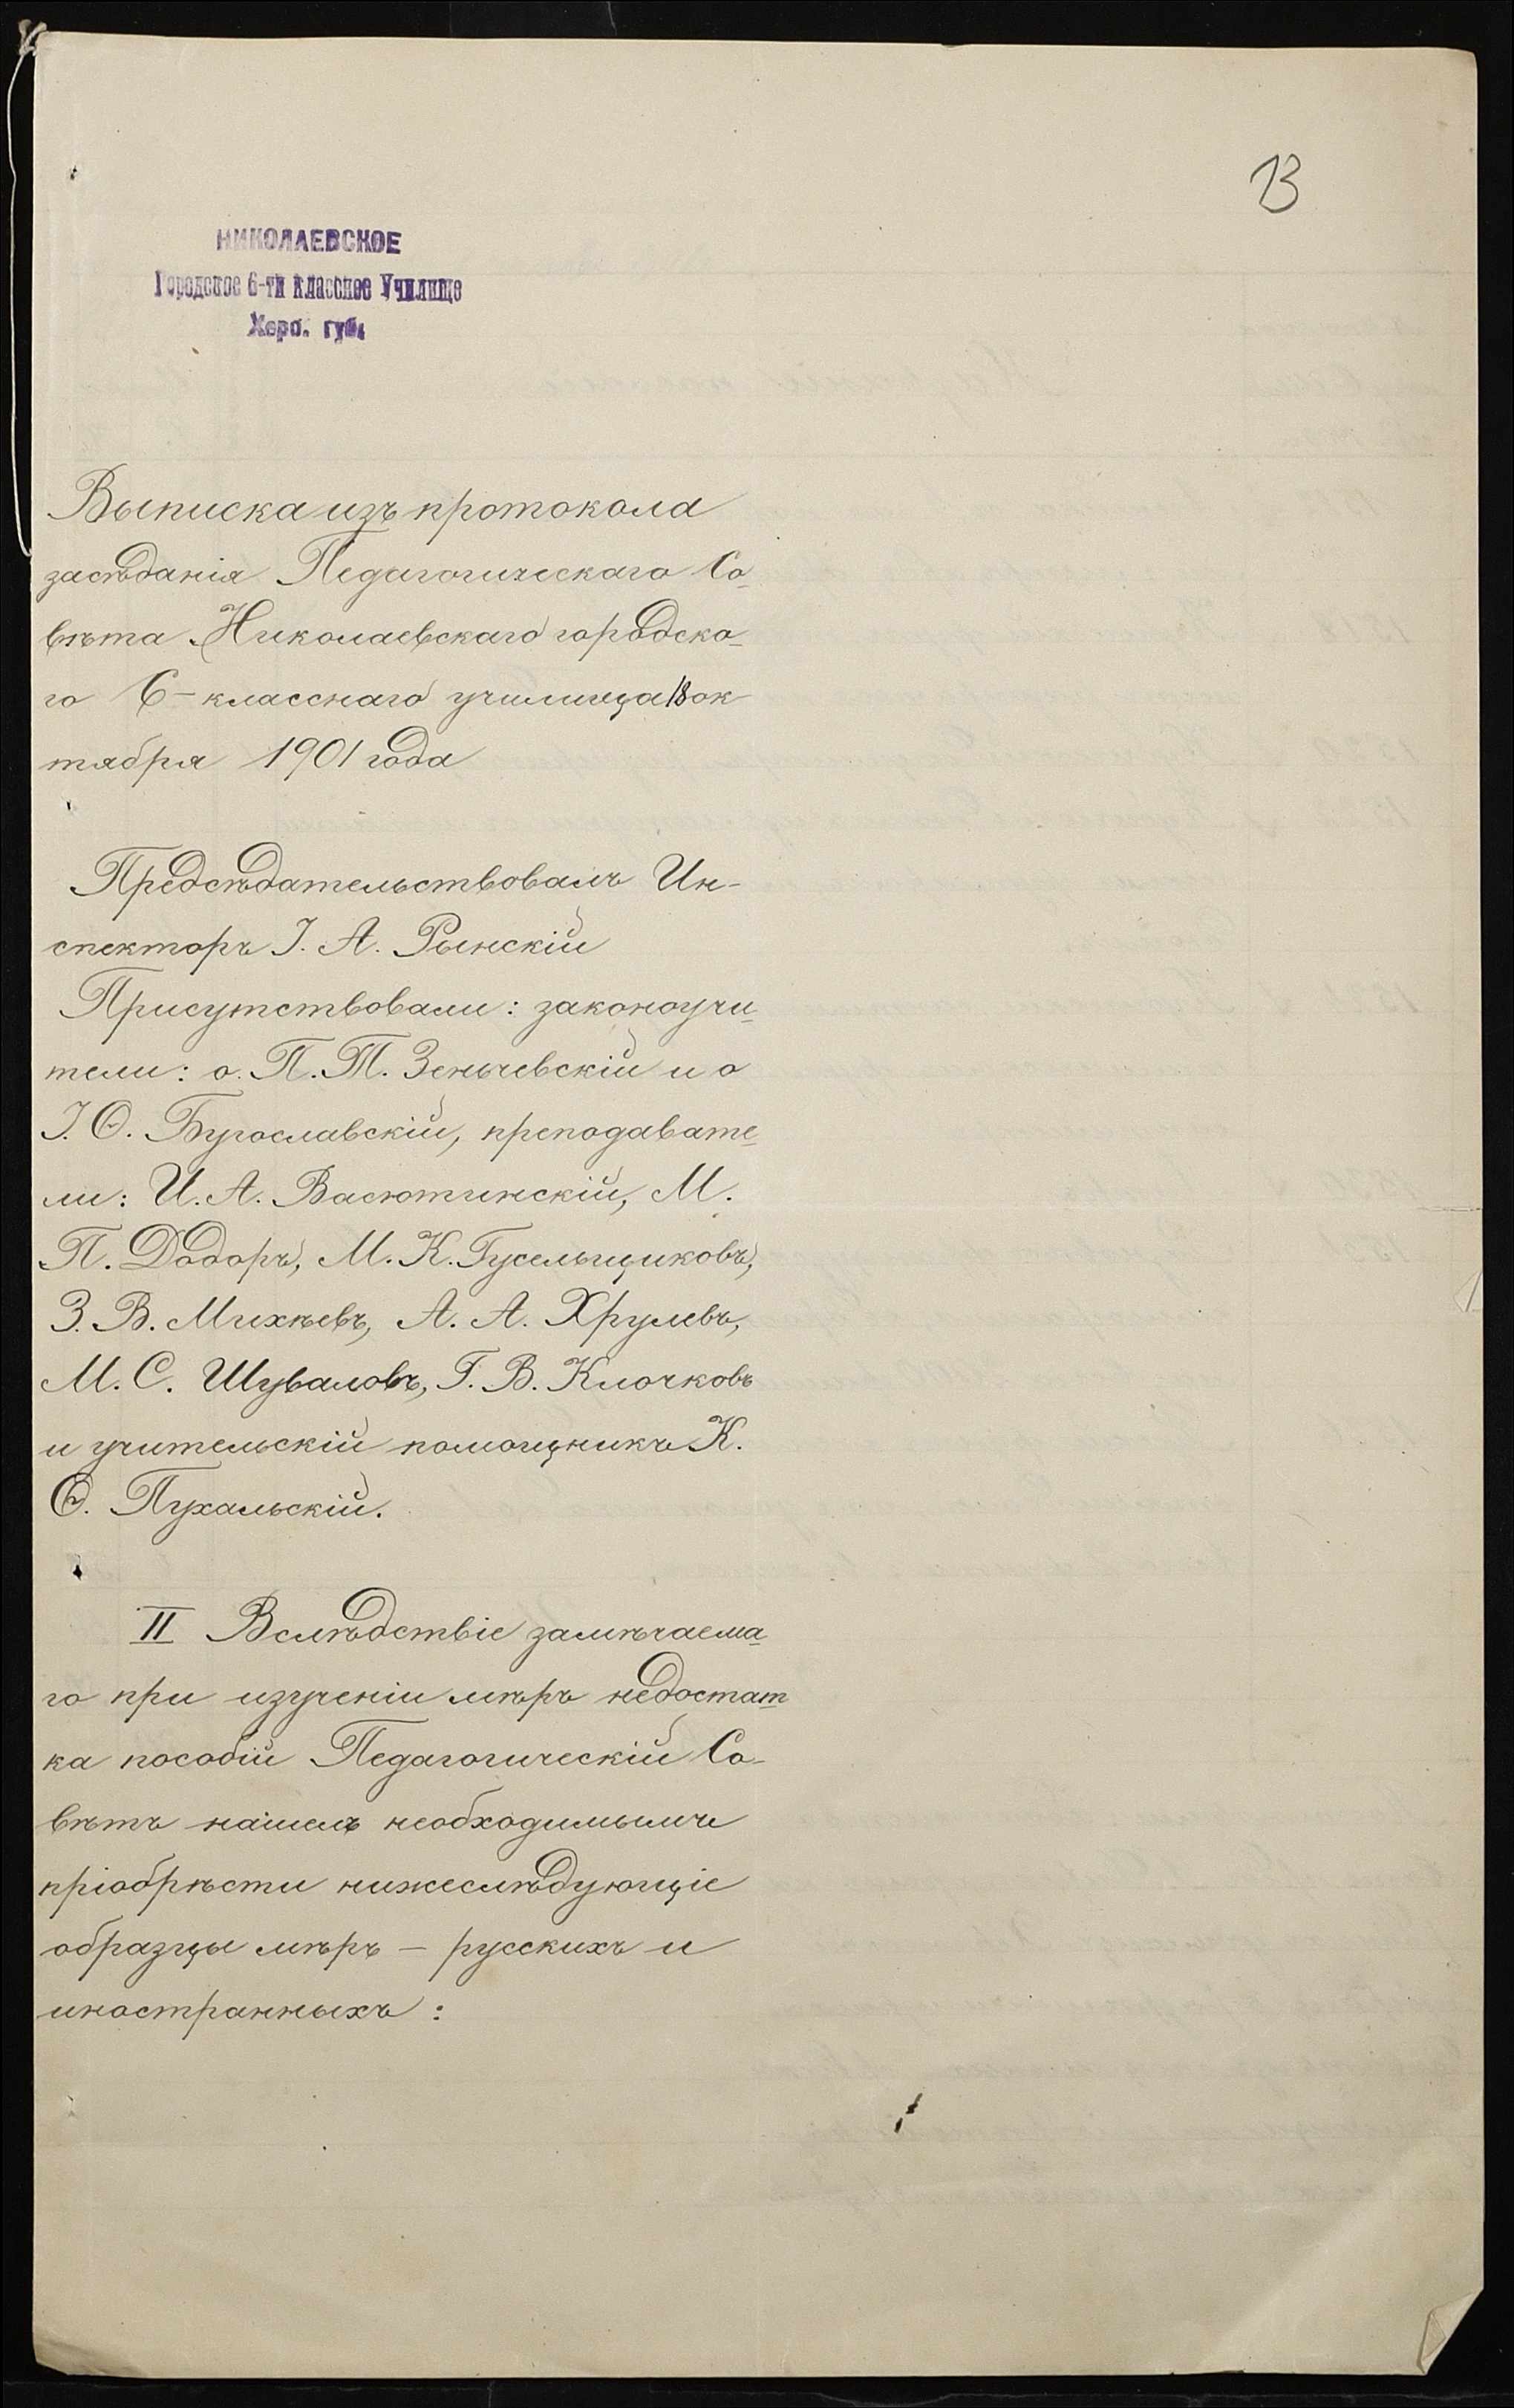 13
НИКОЛАЕВСКОЕ
Городское 6-ти классное Училище
Херс. губ.
Выписка изъ протокола
засѣданія Педагогическаго Со-
вѣта Николаевскаго городско-
го 6-класснаго училища 18 ок
тября 1901 года
Предсѣдательствовалъ Ин-
спекторъ І. А. Рынскій
Присутствовали: законоучи-
тели: о. П. Т. Зеньчевскій и о
І. Ѳ. Бугославскій, преподавате-
ли: И. А. Васютинскій, М.
П. Додоръ, М. К. Гусельщиковъ,
З. В. Михѣевъ, А. А. Хрулевъ,
М. С. Шуваловъ, Г. В. Клочковъ
и учительскій помощникъ К.
Ѳ. Пухальскій.
II Вслѣдствіе замѣчаема-
го при изученіи мѣръ недостат-
ка пособій Педагогическій Со-
вѣтъ нашелъ необходимымъ
пріобрѣсти нижеслѣдующіе
образцы мѣръ — русскихъ и
иностранныхъ: